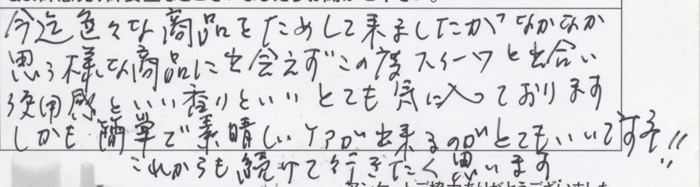 今迄色々な商品をためして来ましたがなかなか
思う様な商品に出会えずこの度スイーツと出合い
使用感といい香りといいとても気に入っております
しかも簡単で素晴しいケアが出来るのがとてもいいですネ!!
これからも続けて行きたく思います